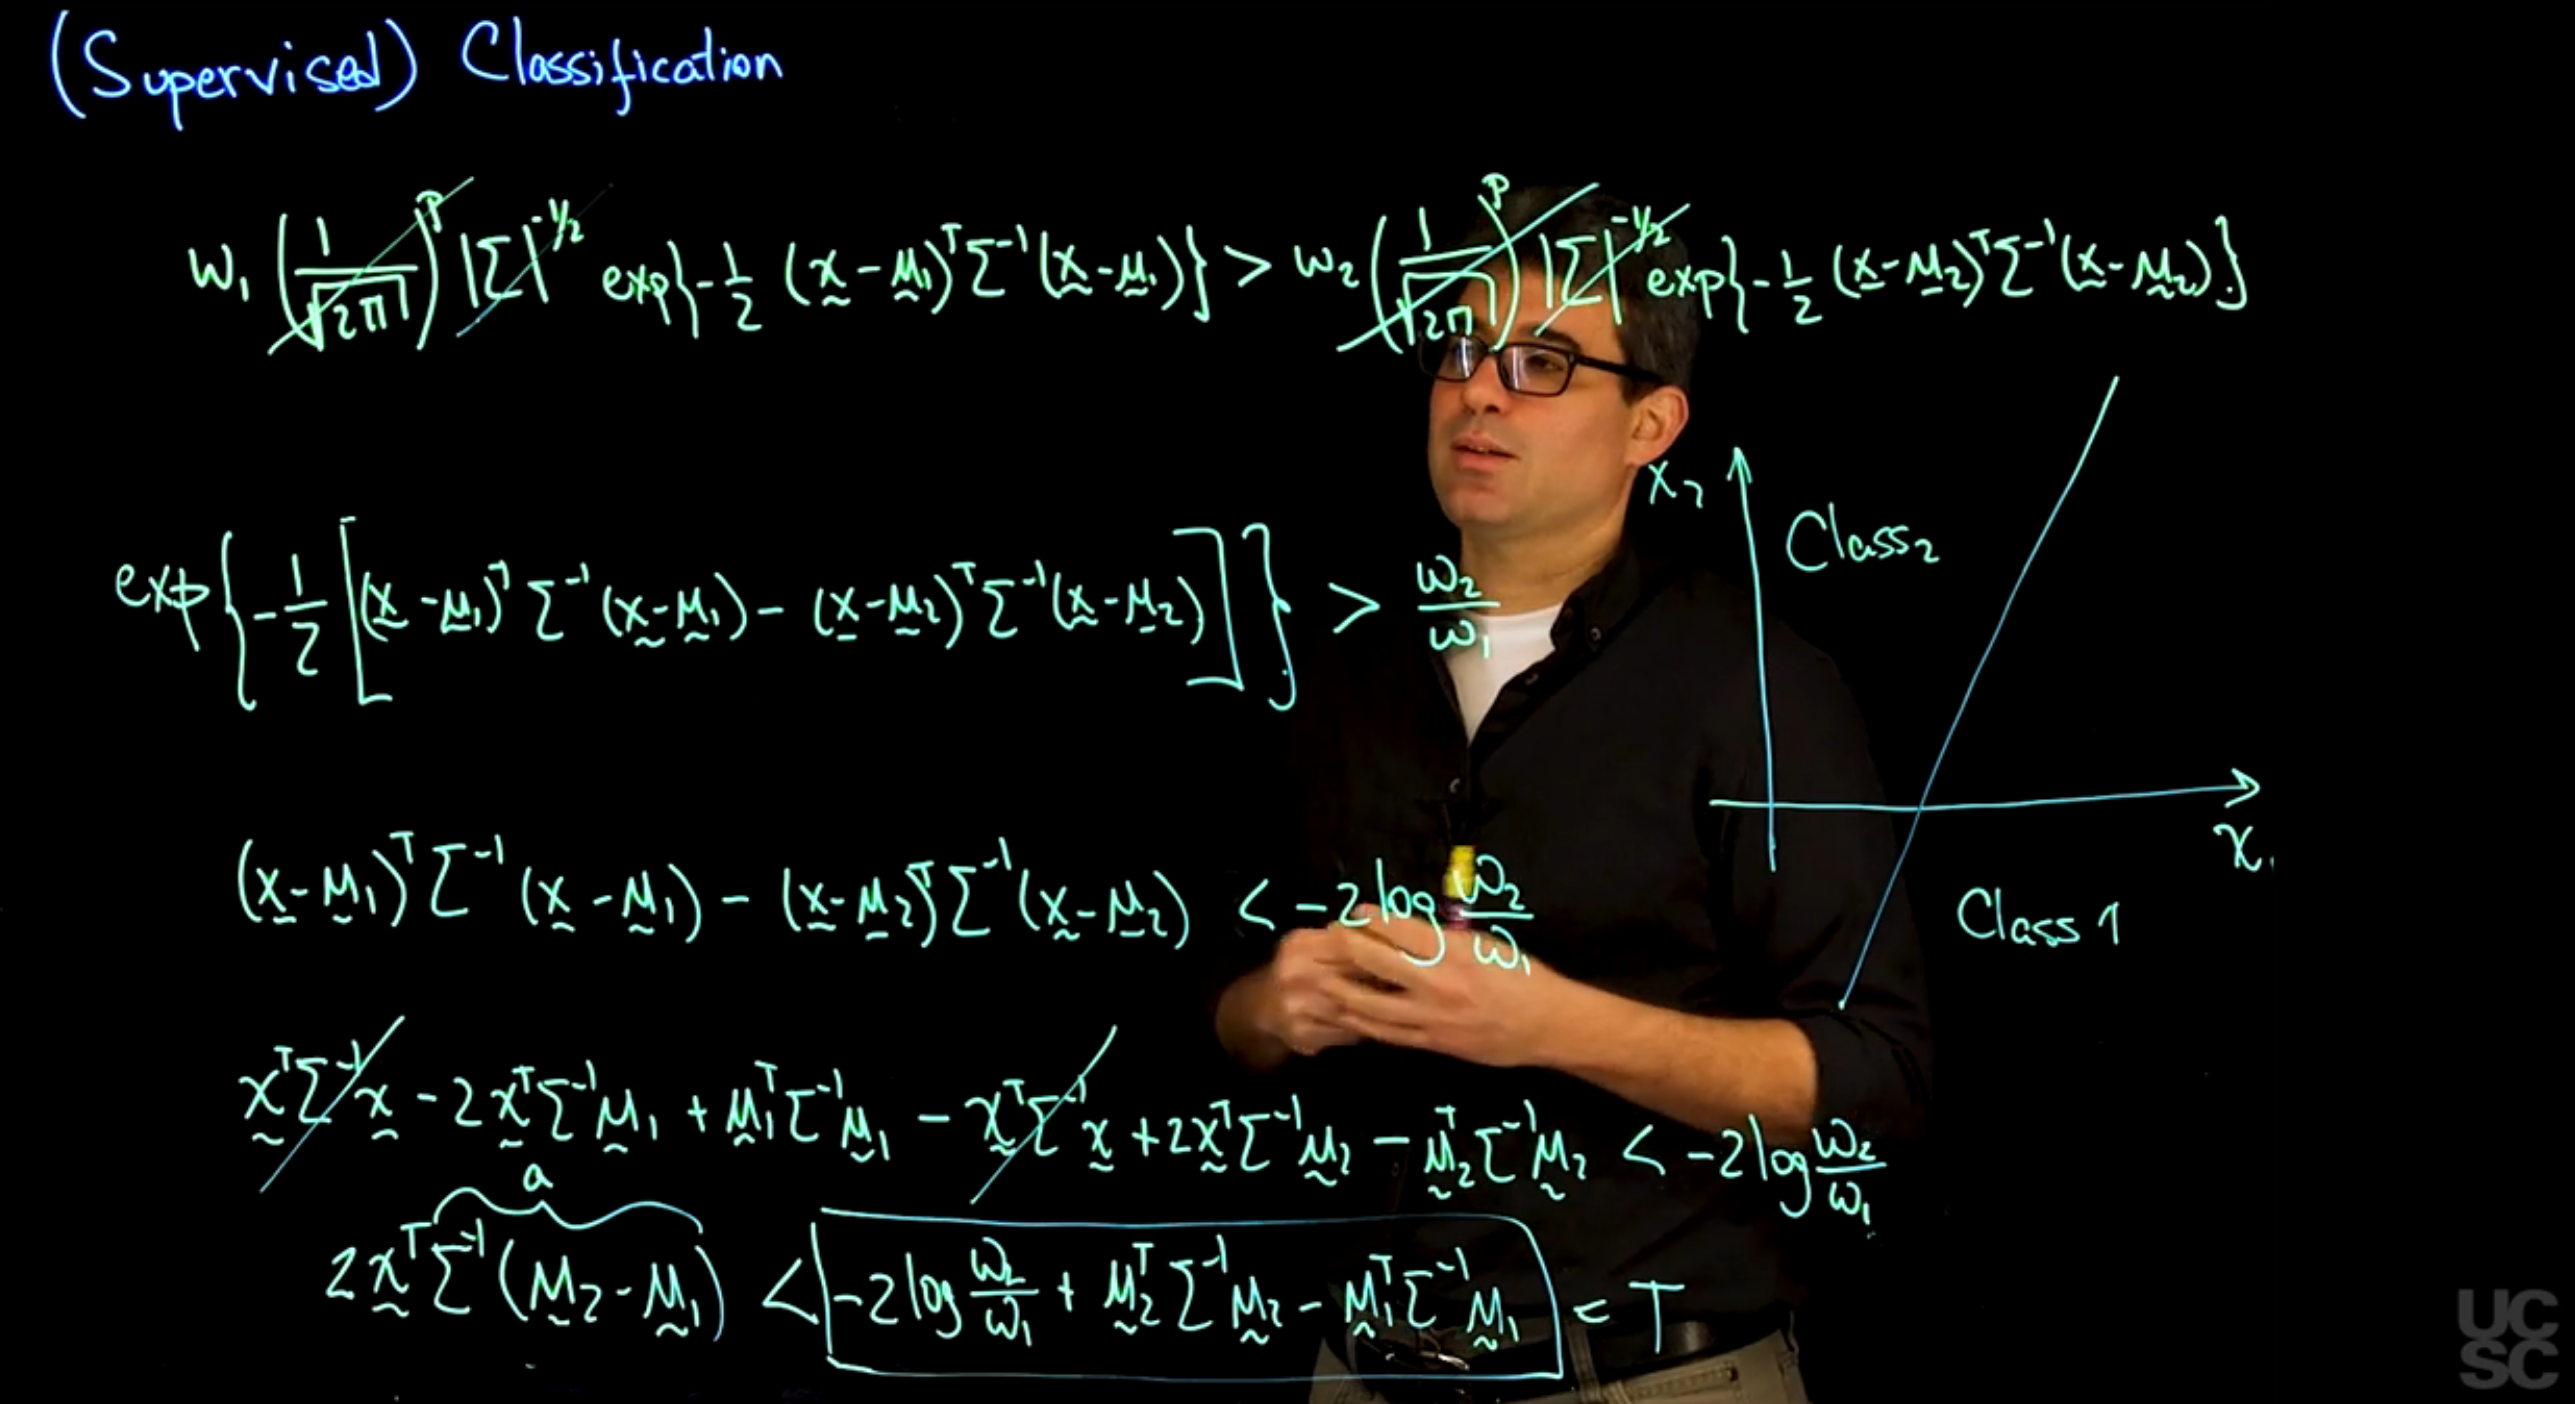 (Supervised) Classification
w₁ (1/√2π)^p |Σ|^-1/2 exp{-1/2 (x-μ₁)ᵀΣ⁻¹(x-μ₁)} > w₂ (1/√2π)^p |Σ|^-1/2 exp{-1/2 (x-μ₂)ᵀΣ⁻¹(x-μ₂)}
exp{-1/2 [(x-μ₁)ᵀ Σ⁻¹ (x-μ₁) - (x-μ₂)ᵀΣ⁻¹(x-μ₂)]} > w₂/w₁
x₂
Class₂
x₁
Class 1
(x-μ₁)ᵀ Σ⁻¹ (x-μ₁) - (x-μ₂)ᵀΣ⁻¹(x-μ₂) < -2 log w₂/w₁
xᵀΣ⁻¹x - 2xᵀΣ⁻¹μ₁ + μ₁ᵀΣ⁻¹μ₁ - xᵀΣ⁻¹x + 2xᵀΣ⁻¹μ₂ - μ₂ᵀΣ⁻¹μ₂ < -2 log w₂/w₁
a
2xᵀΣ⁻¹(μ₂-μ₁) < -2 log w₂/w₁ + μ₂ᵀΣ⁻¹μ₂ - μ₁ᵀΣ⁻¹μ₁ = T
UC
SC